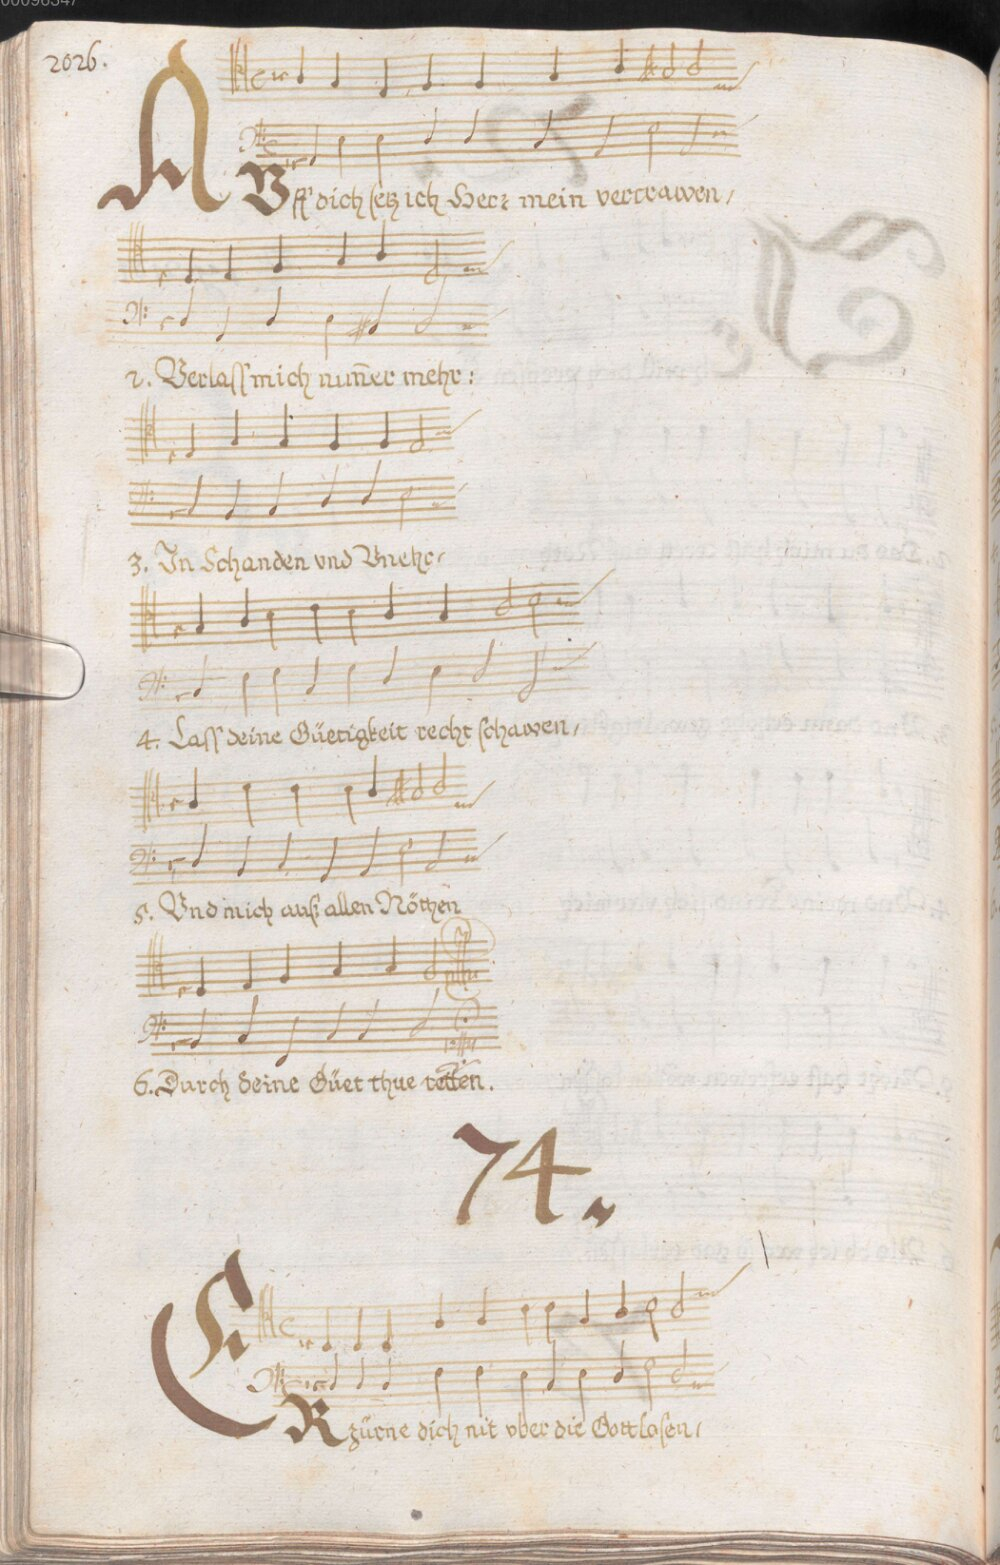 00096347
2026.
AUff dich setz ich Herz mein vertrawen,
2. Verlass mich nim̄er mehr:
3. In Schanden vnd Vnehr,
4. Lass deine Güetigkeit recht schawen,
5. Vnd mich auß allen Nöthen
6. Durch deine Güet thue retten.
74.
ERzürne dich nit vber die Gottlosen,